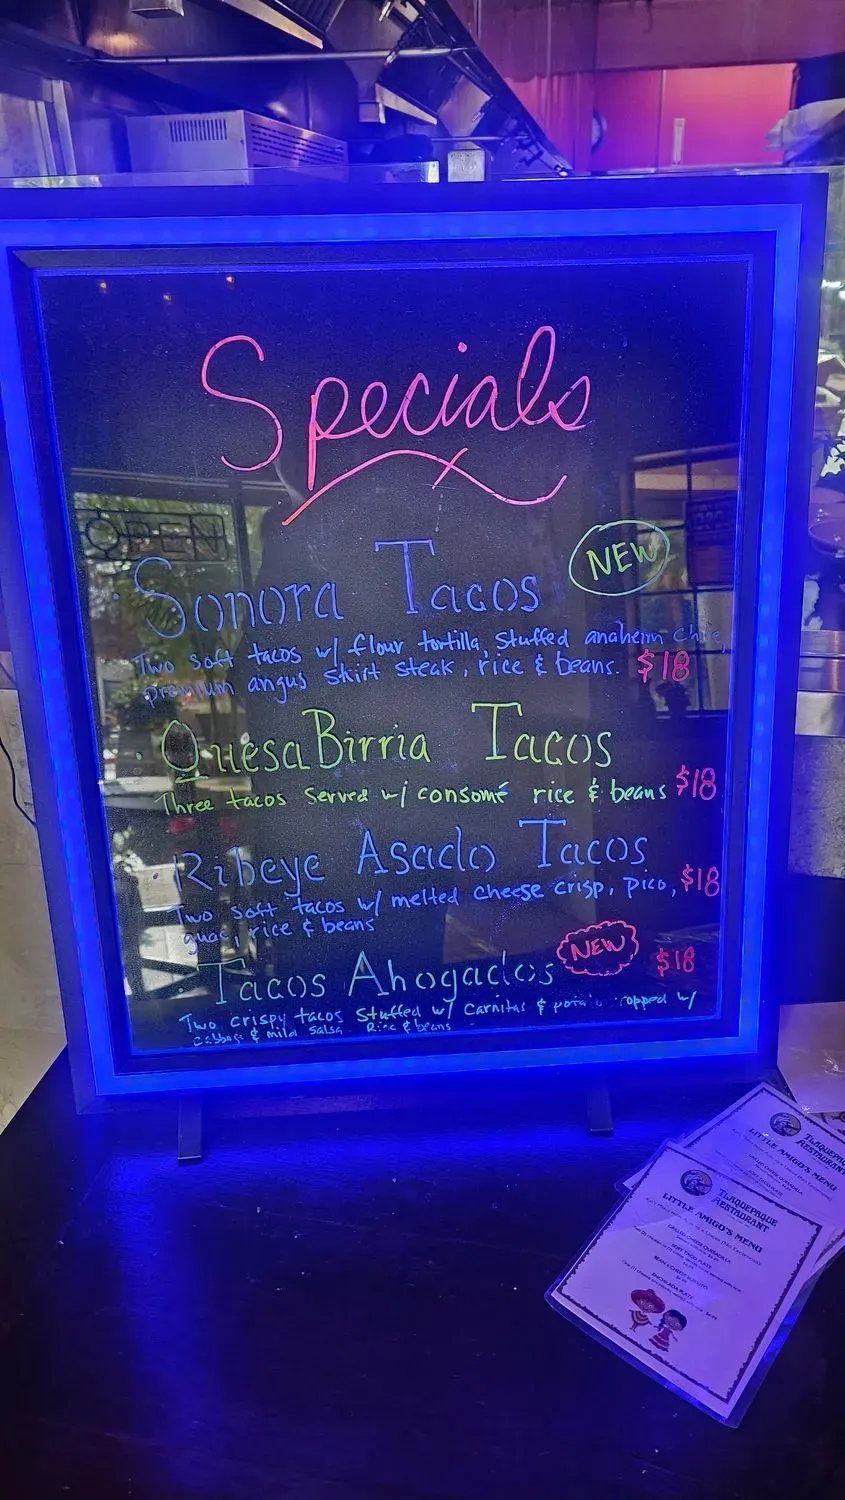 Specials
OPEN
Sonora Tacos
NEW
Two soft tacos w/ flour tortilla, Stuffed anaheim
premium angus skirt steak, rice & beans. $18
QuesaBirria Tacos
Three tacos Served w/ consomé rice & beans $18
Ribeye Asado Tacos
Two soft tacos w/ melted cheese crisp, pico, $18
guac, rice & beans
Tacos Ahogados
NEW
$18
Two crispy tacos Stuffed w/ carnitas & w/
& mild salsa Rice & beans
TLAQUEPAQUE
RESTAURANT
LITTLE AMIGO'S MENU
TLAQUEPAQUE
RESTAURANT
LITTLE AMIGO'S MENU
GRILLED CHEESE QUESADILLA
SOFT TACO PLATE
BEAN & CHEESE BURRITO
ENCHILADA PLATE